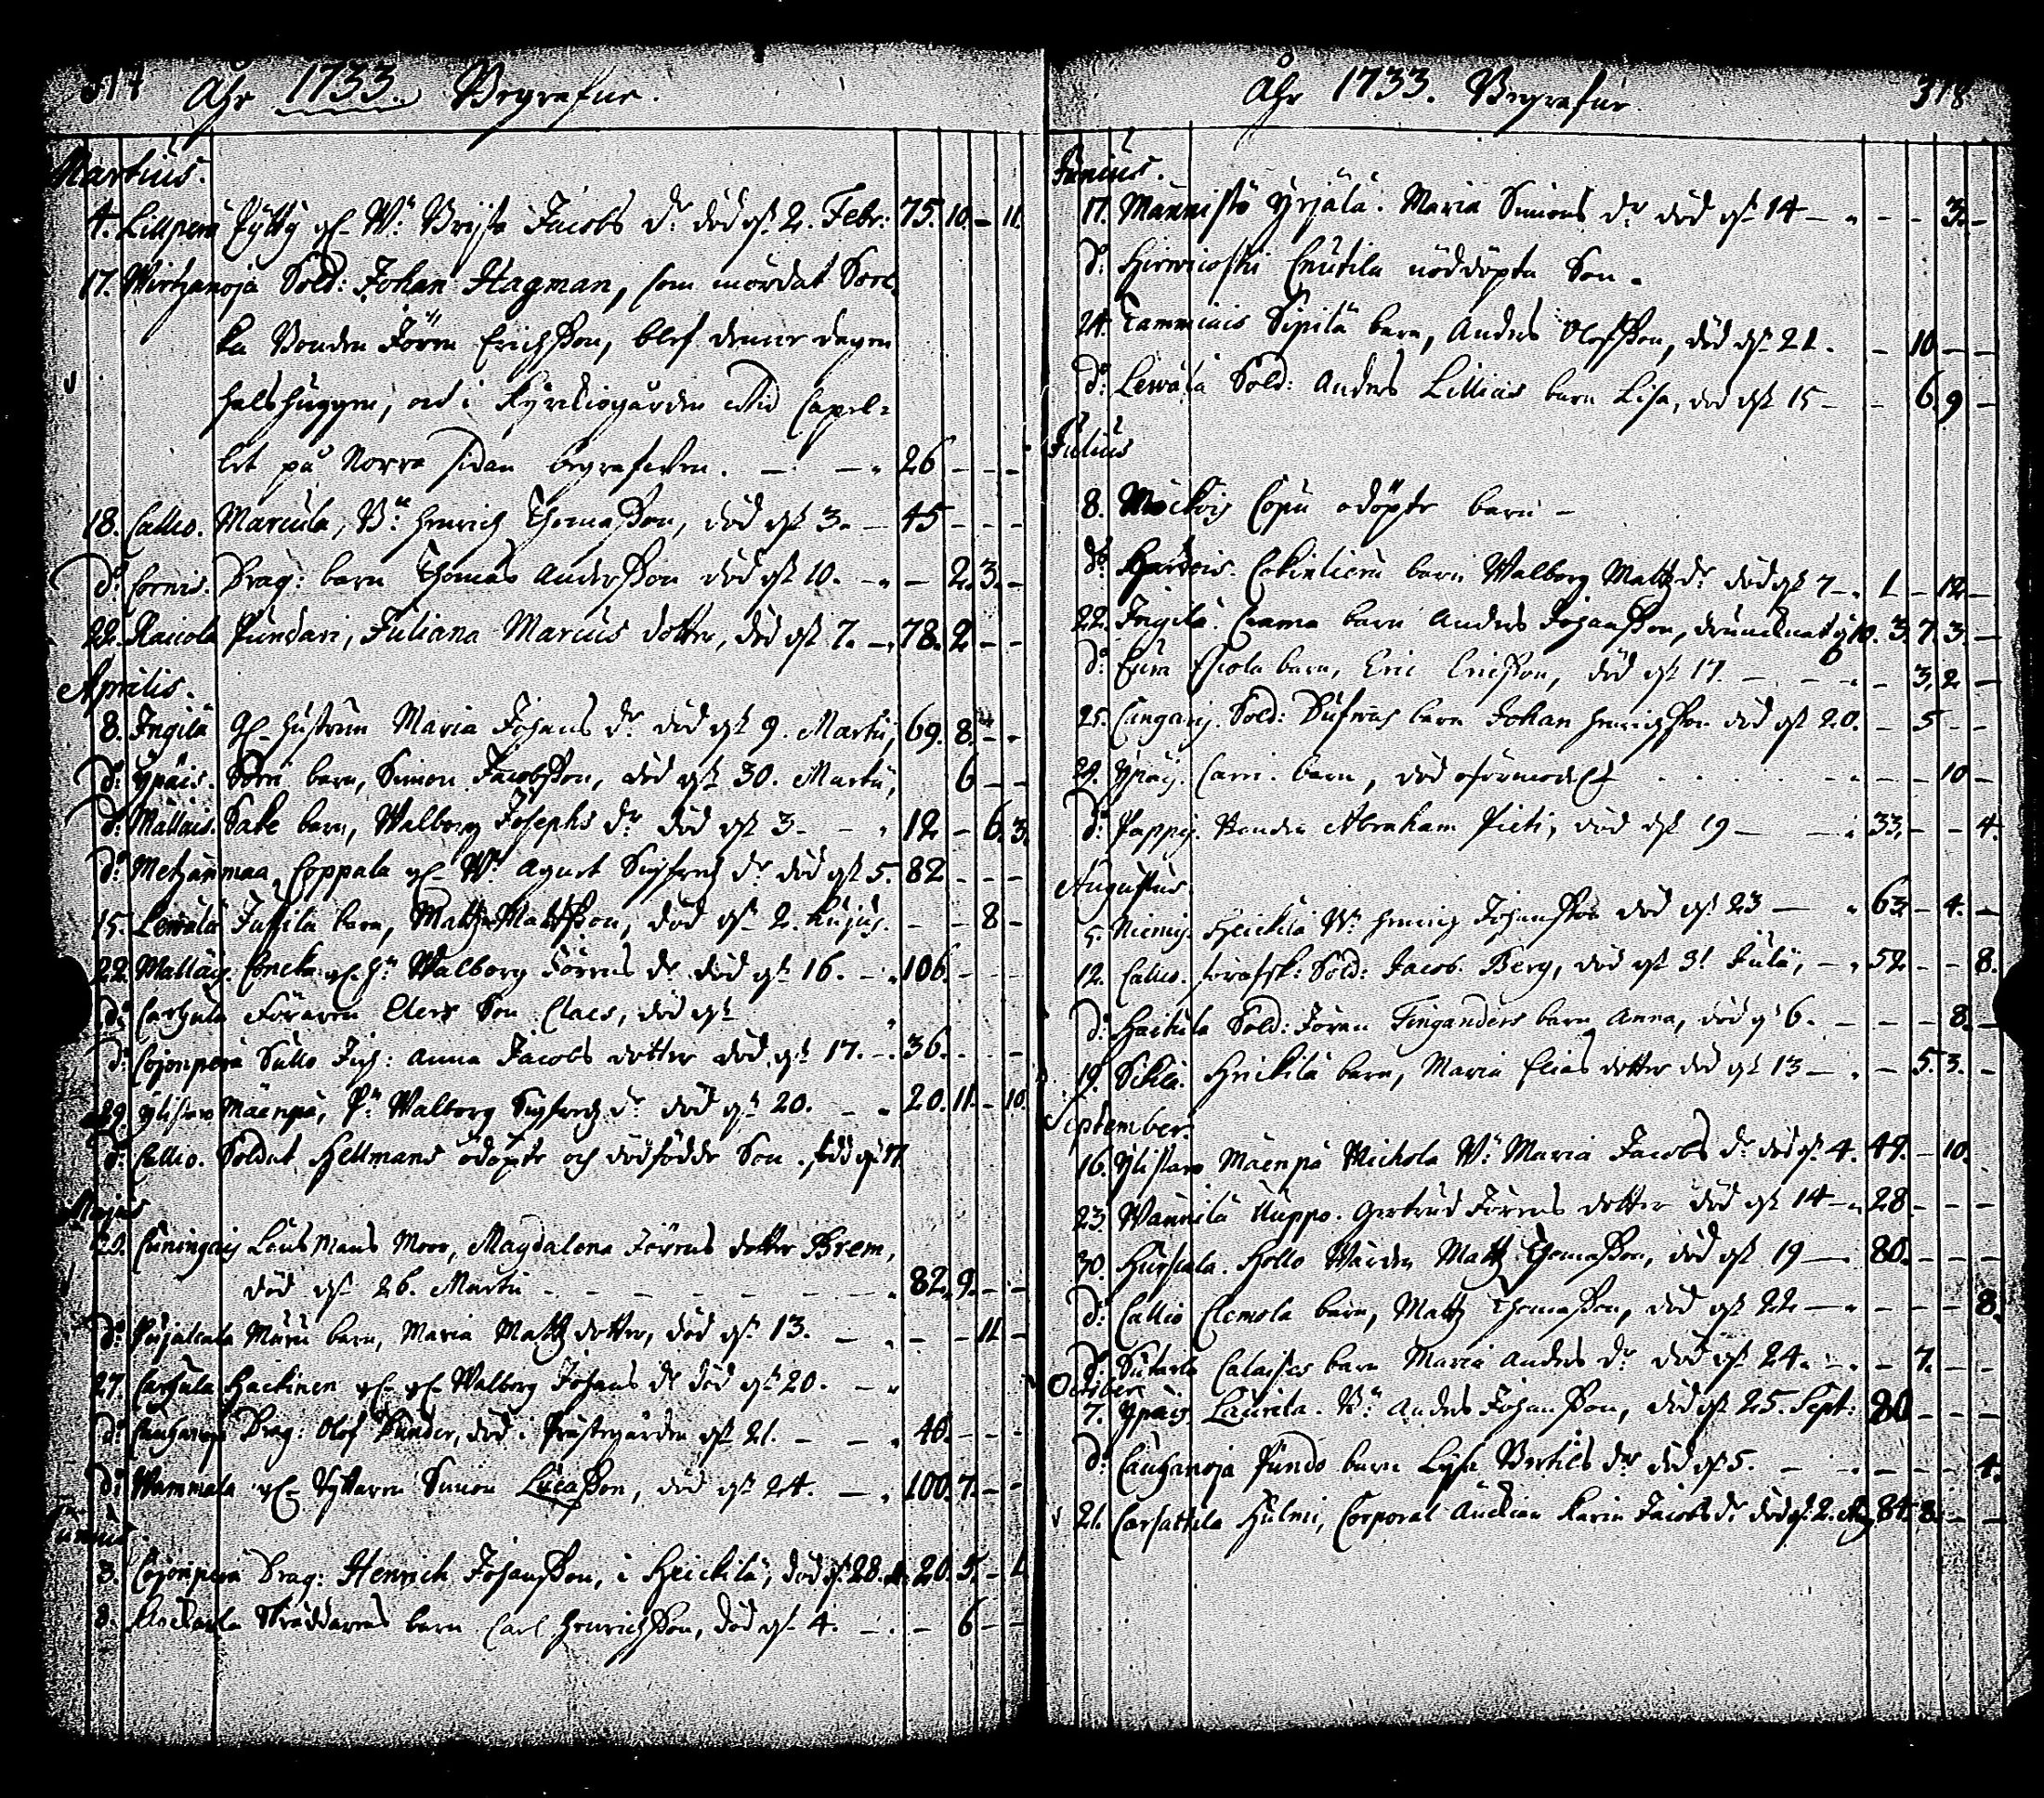 317 Åhr 1733. Begrafne.
Martius.
4. Lillperä Pÿttÿ gl. Wn Brijta Jacobs dr död d. 2. Febr: 75. 10. – 11.
17. Wirtzanoja Sold: Johan Hagman, som mördat Sorc
ka Bonden Jören Erichsson, blef denne dagen
halshuggen, och i Kÿrkiogården wid Capel-
let på Norra sidan begrafwen. – – 26 – – –
18. Callio. Marcula, Bn Henrich Thomasson, död d. 3. – 45 – – –
do Cornis. Drag: barn Thomas Andersson död d. 10. – – 2. 3. –
22. Raicola Pundari, Juliana Marcus dotter, död d. 7. – 78. 2 – –
Aprilis.
8. Ingilä gl. hustrun Maria Johans dr död d. 9. Martii, 69. 8. – –
do Ypäis. Sorri barn, Simon Jacobsson, död d. 30. Martii, 6 – –
do Mallais. Sake barn, Walborg Josephs dr död d. 3. – – 12 – 6. 3.
do Metzänmaa, Coppala gl. Wn Agnet Sigfredz dr död d. 5. 82 – – –
15. Lewälä Jussila barn, Matz Mattsson, död d. 2. hujus. – – 8 –
22. Mallais. Concka gl. hn Walborg Jörens dr död d. 16. – 106. – – –
do Carhula Föraren Elers Son Claes, död d.
do Cojonperä Sullo Pig: Anna Jacobs dotter död d. 17. – 36. – – –
29. Ylistaro Mäenpä, Pn Walborg Sigfredz dr död d. 20. – – 20. 11. – 10.
do Callio. Soldat Hellmans odöpte och dödfödde Son, född d. 17.
Majus
20. Cuningais Länsmans Moor, Magdalena Jörens dotter Brem,
död d. 26. Martii – – – – – – 82. 9. – –
do Pirjalcala Muru barn, Maria Matz dotter, död d. 13. – – – 11 –
27. Carhula Hackinen gl. gl. Walborg Johans dr död d. 20. –
do Cauhanoja Drag: Olof Sunder, död i Prästegården d. 21. – – 40. – – –
do Wammala gl. Ryttaren Simon Lucasson, död d. 24. – 100. 7. – –
Junius.
3. Cojonperä Drag: Henrich Johansson, i Heickilä, död d. 28. 20. 5. – 1.
8. Skräddarens barn Carl Henrichsson, död d. 4. – – 6 – –
Åhr 1733. Begrafne 318
Junius.
17. Männistö Yrjälä. Maria Simons dr död d. 14 – – – 3. –
do Hirwicoski Cnutila nöddöpta Son.
24. Tammiais Sipilä barn, Anders Olofsson, död d. 21. – 10 – –
do Lewälä Sold: Anders Lillias barn Lisa, död d. 15 – – 6. 9 –
Julius
8. Möckois Copu odöpte barn –
do Hardois. barn Walborg Matz dr död d. 7 – 1 – 12 –
22. Ingilä. Crama barn Anders Johansson, drunknat d. 10. 3. 7. 3. –
do Eura Eskola barn, Eric Ericsson, död d. 17. – – 3. 2 –
25. Cangaris. Sold: barn Johan Henrichsson död d. 20. – 5 – –
29. Ypäis. Carri. barn, död oförmodeligt – – – 10 –
do Pappis. Bonden Abraham Pieti, död d. 19 – – 33. – – 4.
Augustus.
5. Niemis. Heickilä Wn Henrig Johansson död d. 23 – 63. – 4. –
12. Callio. Sold: Jacob Berg, död d. 31 Julii, – 52 – – 8.
do Haikula Sold: Jöran Finganders barn Anna, död d. 6. – – – 8. –
19. Sikilä. Heickilä barn, Maria Elias dotter död d. 13 – – 5. 3. –
September.
16. Ylistaro Mäenpä Michola Wn Maria Jacobs dr död d. 4. 49. – 10.
23. Wännilä Uuppo. Gertrud Jörens dotter död d. 14 – 28 – – –
30. Hurstala. Hollo Wärden Matz Thomasson, död d. 19 – 80. – – –
do Callio Clemola barn, Matz Thomasson, död d. 22 – – – – 8.
do Sutaris Calaisas barn Maria Anders dr död d. 24. – – 7. – –
October.
7. Ypäis Laurila. Bn Anders Johansson, död d. 25. Sept: 80 – – –
do Cauhanoja Pundo barn Lisa Bertils dr död d. 5. – – – – 4.
21. Carsattila Hulmi, Corporal Änckian Karin Jacobs dr död d. 2. 84. 8. – –